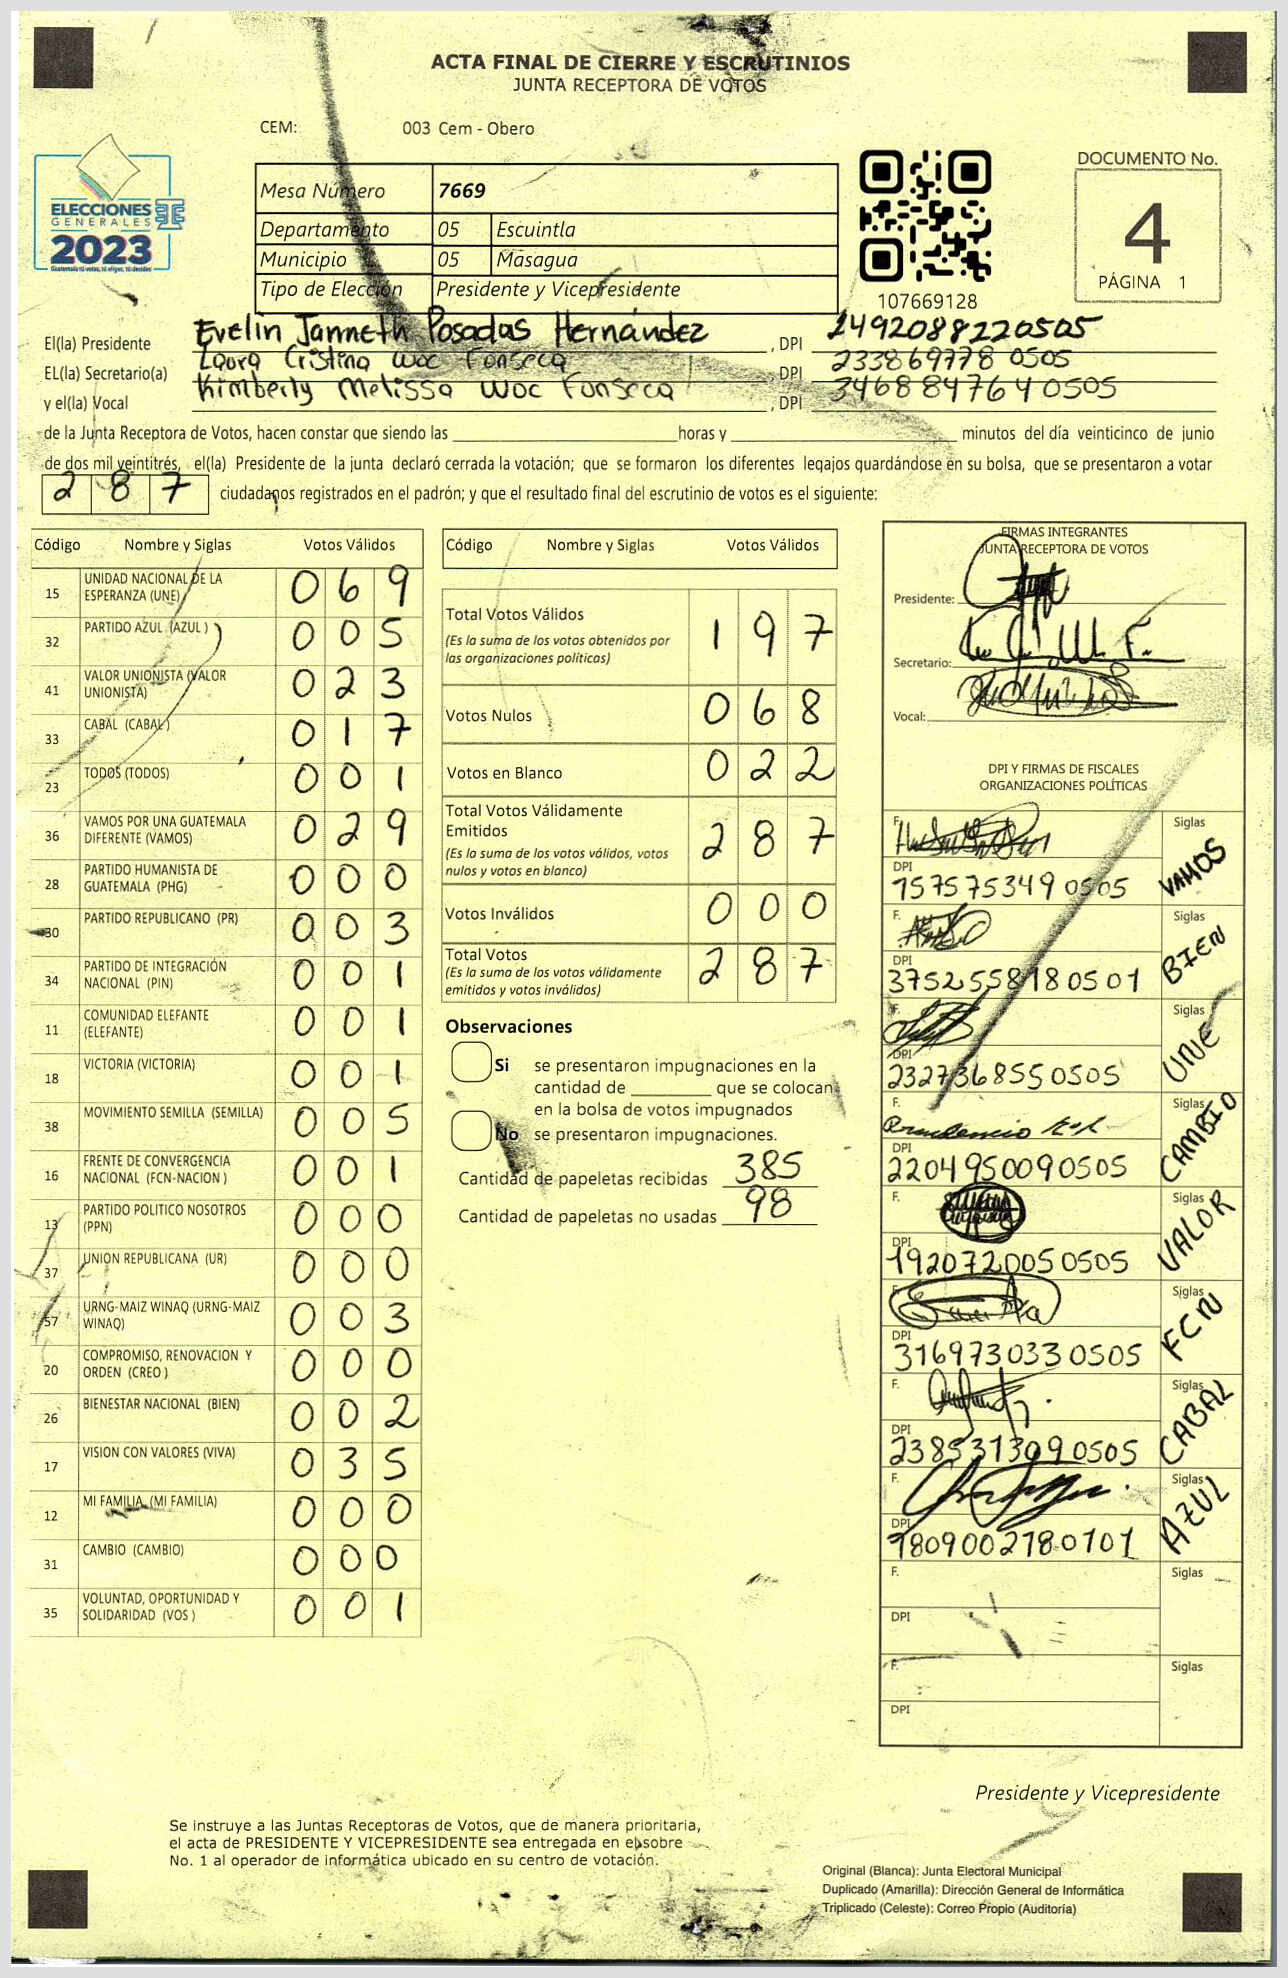 ACTA FINAL DE CIERRE Y ESCRUTINIOS
JUNTA RECEPTORA DE VOTOS
CEM: 003 Cem - Obero
ELECCIONES
GENERALES
2023
Guatemala tú votas, tú eliges, tú decides
Mesa Número 7669
Departamento 05 Escuintla
Municipio 05 Masagua
Tipo de Elección Presidente y Vicepresidente
107669128
DOCUMENTO No.
4
PÁGINA 1
El(la) Presidente Evelin Janneth Posadas Hernández , DPI 2492088220505
EL(la) Secretario(a) Laura Cristina Woc Fonseca , DPI 233869778 0505
y el(la) Vocal Kimberly Melissa Woc Fonseca , DPI 346884764 0505
de la Junta Receptora de Votos, hacen constar que siendo las horas y minutos del día veinticinco de junio
de dos mil veintitrés, el(la) Presidente de la junta declaró cerrada la votación; que se formaron los diferentes legajos guardándose en su bolsa, que se presentaron a votar
2 8 7 ciudadanos registrados en el padrón; y que el resultado final del escrutinio de votos es el siguiente:
Código Nombre y Siglas Votos Válidos
15 UNIDAD NACIONAL DE LA ESPERANZA (UNE) 0 6 9
32 PARTIDO AZUL (AZUL ) 0 0 5
41 VALOR UNIONISTA (VALOR UNIONISTA) 0 2 3
33 CABAL (CABAL ) 0 1 7
23 TODOS (TODOS) 0 0 1
36 VAMOS POR UNA GUATEMALA DIFERENTE (VAMOS) 0 2 9
28 PARTIDO HUMANISTA DE GUATEMALA (PHG) 0 0 0
30 PARTIDO REPUBLICANO (PR) 0 0 3
34 PARTIDO DE INTEGRACIÓN NACIONAL (PIN) 0 0 1
11 COMUNIDAD ELEFANTE (ELEFANTE) 0 0 1
18 VICTORIA (VICTORIA) 0 0 1
38 MOVIMIENTO SEMILLA (SEMILLA) 0 0 5
16 FRENTE DE CONVERGENCIA NACIONAL (FCN-NACION ) 0 0 1
13 PARTIDO POLITICO NOSOTROS (PPN) 0 0 0
37 UNION REPUBLICANA (UR) 0 0 0
57 URNG-MAIZ WINAQ (URNG-MAIZ WINAQ) 0 0 3
20 COMPROMISO, RENOVACION Y ORDEN (CREO ) 0 0 0
26 BIENESTAR NACIONAL (BIEN) 0 0 2
17 VISION CON VALORES (VIVA) 0 3 5
12 MI FAMILIA (MI FAMILIA) 0 0 0
31 CAMBIO (CAMBIO) 0 0 0
35 VOLUNTAD, OPORTUNIDAD Y SOLIDARIDAD (VOS ) 0 0 1
Código Nombre y Siglas Votos Válidos
Total Votos Válidos 1 9 7
(Es la suma de los votos obtenidos por
las organizaciones políticas)
Votos Nulos 0 6 8
Votos en Blanco 0 2 2
Total Votos Válidamente
Emitidos 2 8 7
(Es la suma de los votos válidos, votos
nulos y votos en blanco)
Votos Inválidos 0 0 0
Total Votos 2 8 7
(Es la suma de los votos válidamente
emitidos y votos inválidos)
Observaciones
Si se presentaron impugnaciones en la
cantidad de que se colocan
en la bolsa de votos impugnados
No se presentaron impugnaciones.
Cantidad de papeletas recibidas 385
Cantidad de papeletas no usadas 98
FIRMAS INTEGRANTES
JUNTA RECEPTORA DE VOTOS
Presidente:
Secretario:
Vocal:
DPI Y FIRMAS DE FISCALES
ORGANIZACIONES POLÍTICAS
F. Siglas VAMOS
DPI 157575349 0505
F. Siglas BIEN
DPI 3752558180501
F. Siglas UNE
DPI 2327368550505
F. Siglas CAMBIO
DPI 2204950090505
F. Siglas VALOR
DPI 1920720050505
F. Siglas FCN
DPI 316973033 0505
F. Siglas CABAL
DPI 238531309 0505
F. Siglas AZUL
DPI 1809002780101
F. Siglas
DPI
F. Siglas
DPI
Presidente y Vicepresidente
Se instruye a las Juntas Receptoras de Votos, que de manera prioritaria,
el acta de PRESIDENTE Y VICEPRESIDENTE sea entregada en el sobre
No. 1 al operador de informática ubicado en su centro de votación.
Original (Blanca): Junta Electoral Municipal
Duplicado (Amarilla): Dirección General de Informática
Triplicado (Celeste): Correo Propio (Auditoría)